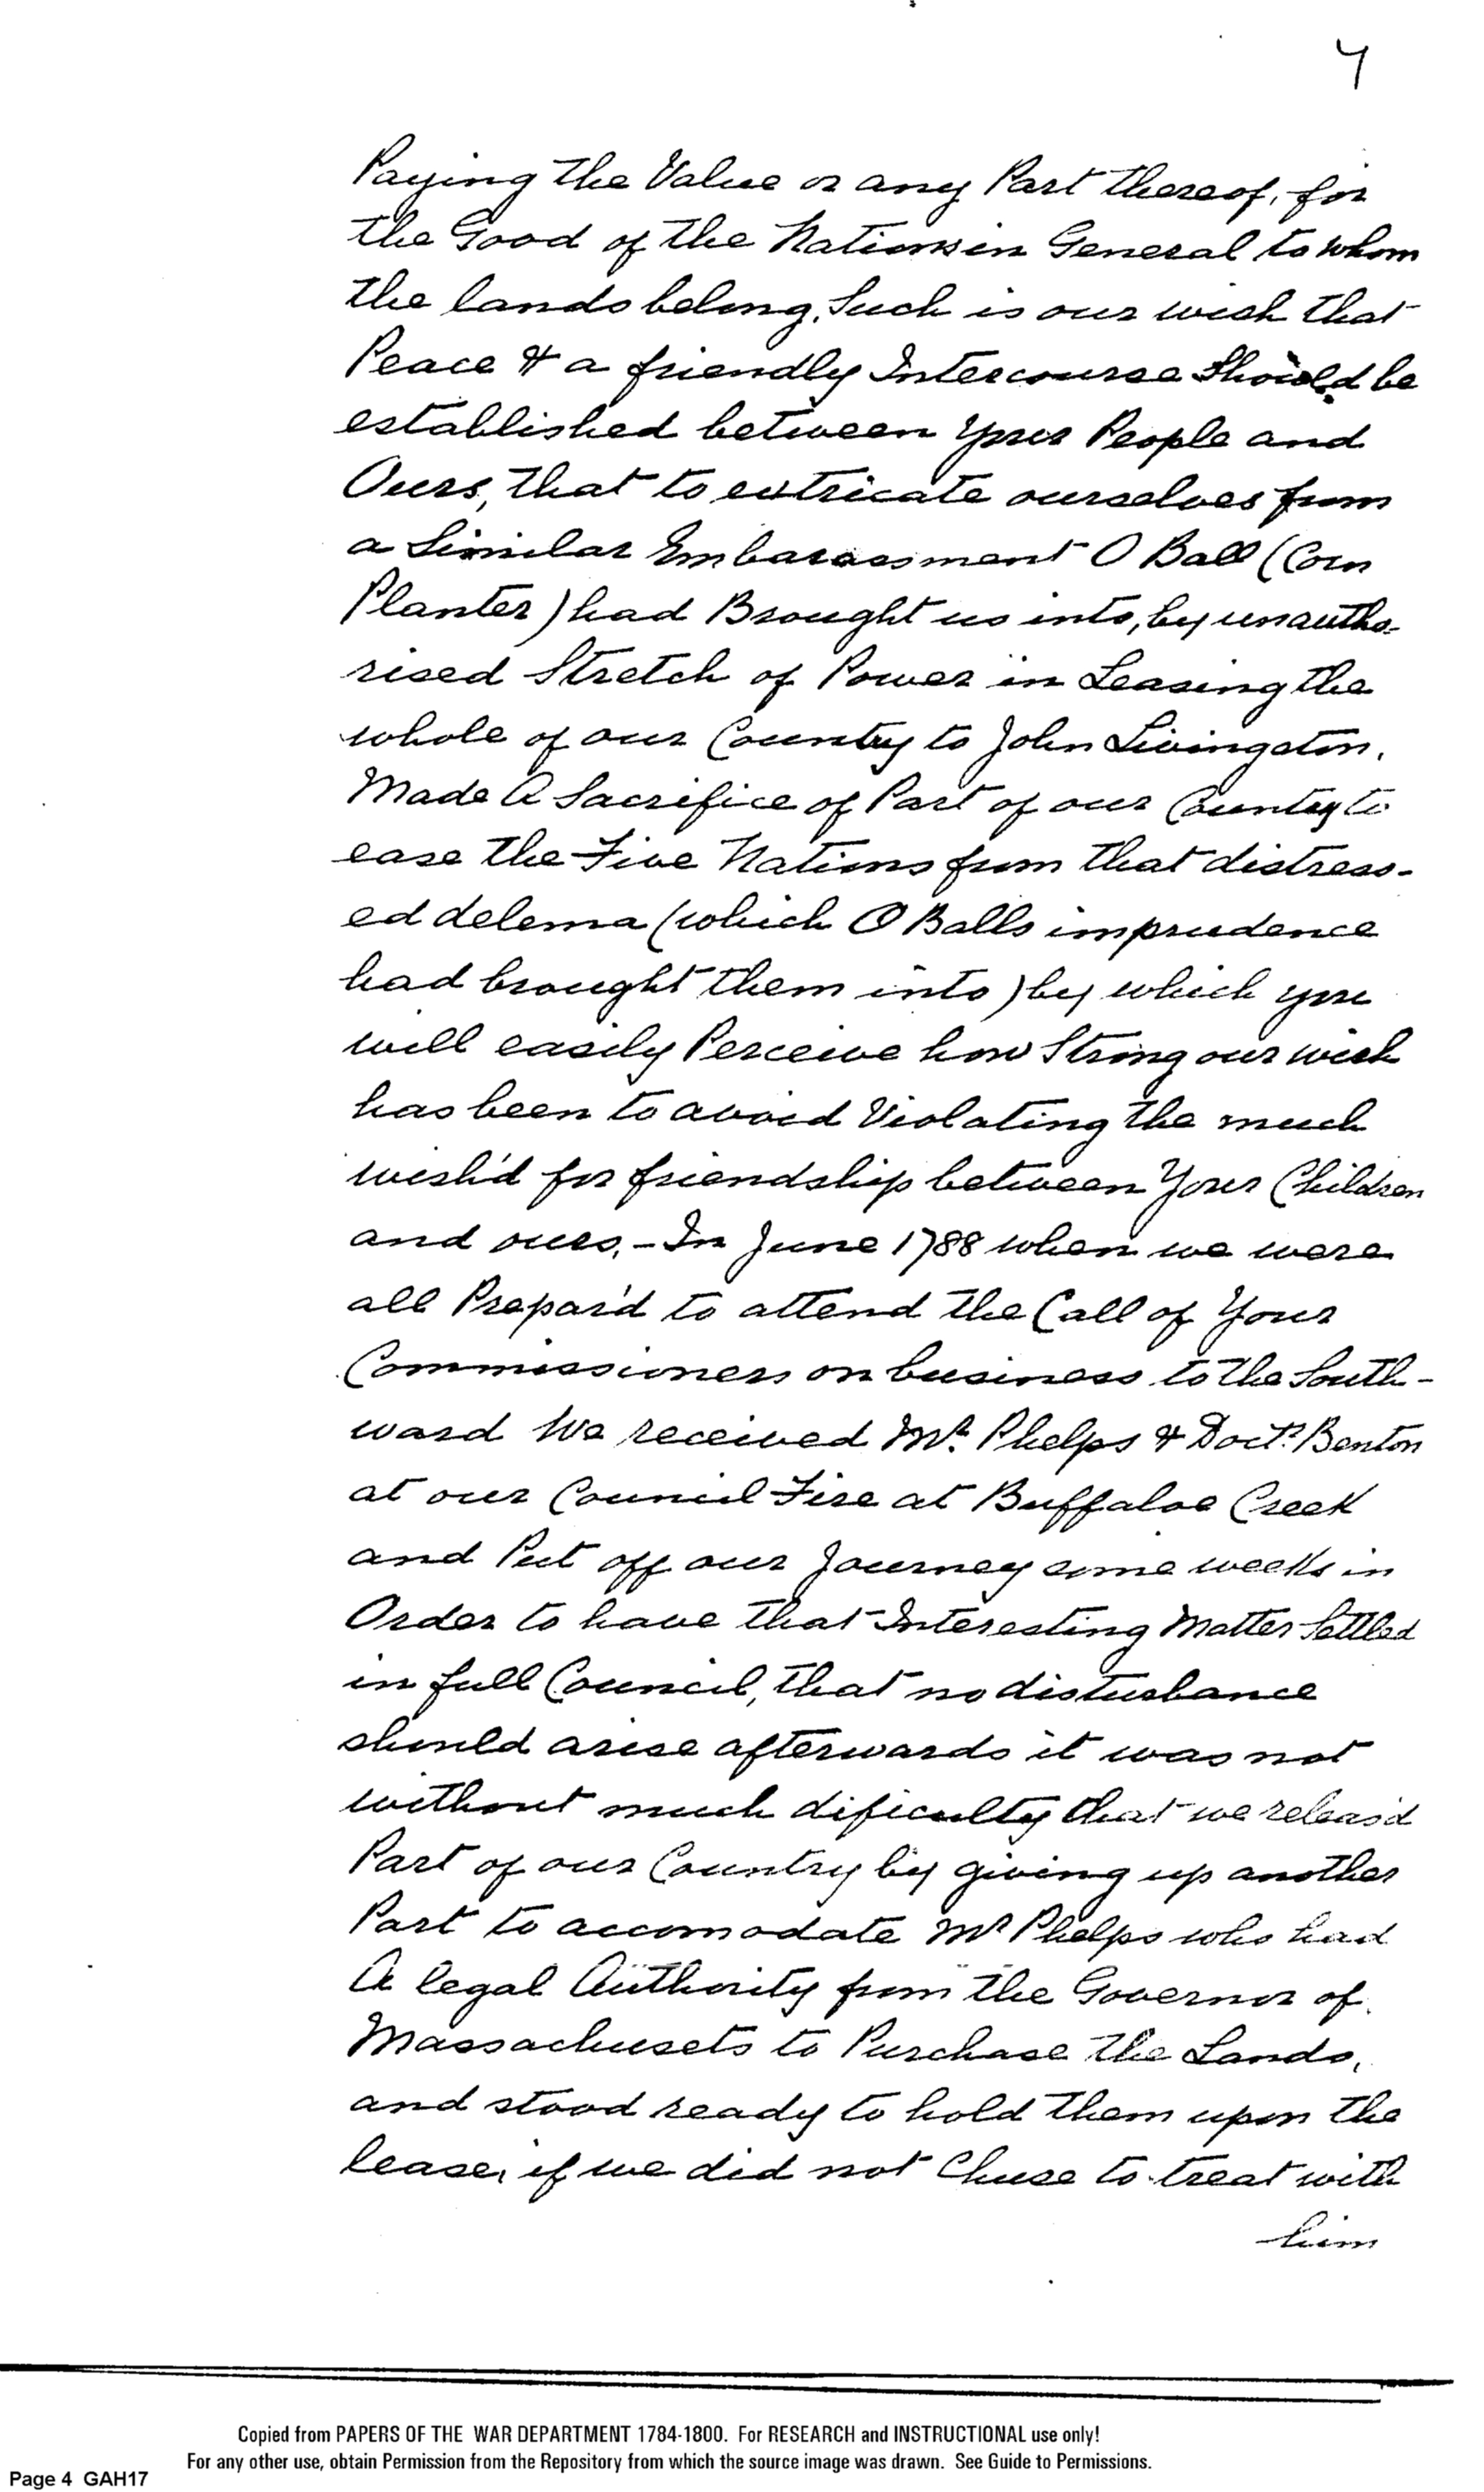 4
Paying the Value or any Part thereof, for
the Good of the Nations in General to whom
the lands belong. Such is our wish that
Peace & a friendly Intercourse Should be
established between your People and
Ours, that to extricate ourselves from
a Similar Embarassment O Ball (Corn
Planter) had Brought us into, by unautho-
rised Stretch of Power in Leasing the
whole of our Country to John Livingston.
Made A Sacrifice of Part of our Country to
ease the Five Nations from that distress-
ed delema (which O Balls imprudence
had brought them into) by which you
will easily Perceive how Strong our wish
has been to avoid Violating the much
wish'd for friendship between Your Children
and ours. - In June 1788 when we were
all Prepar'd to attend the Call of Your
Commissioners on business to the South-
ward We received Mr. Phelps & Doctr. Benton
at our Council Fire at Buffaloe Creek
and Put off our Journey some weeks in
Order to have that Interesting Matter Settled
in full Council, that no disturbance
should arise afterwards it was not
without much dificulty that we releas'd
Part of our Country by giving up another
Part to accomodate Mr Phelps who had
A legal Authority from the Governor of
Massachusets to Purchase the Lands,
and stood ready to hold them upon the
lease, if we did not Chuse to treat with
him
Copied from PAPERS OF THE WAR DEPARTMENT 1784-1800. For RESEARCH and INSTRUCTIONAL use only!
For any other use, obtain Permission from the Repository from which the source image was drawn. See Guide to Permissions.
Page 4 GAH17